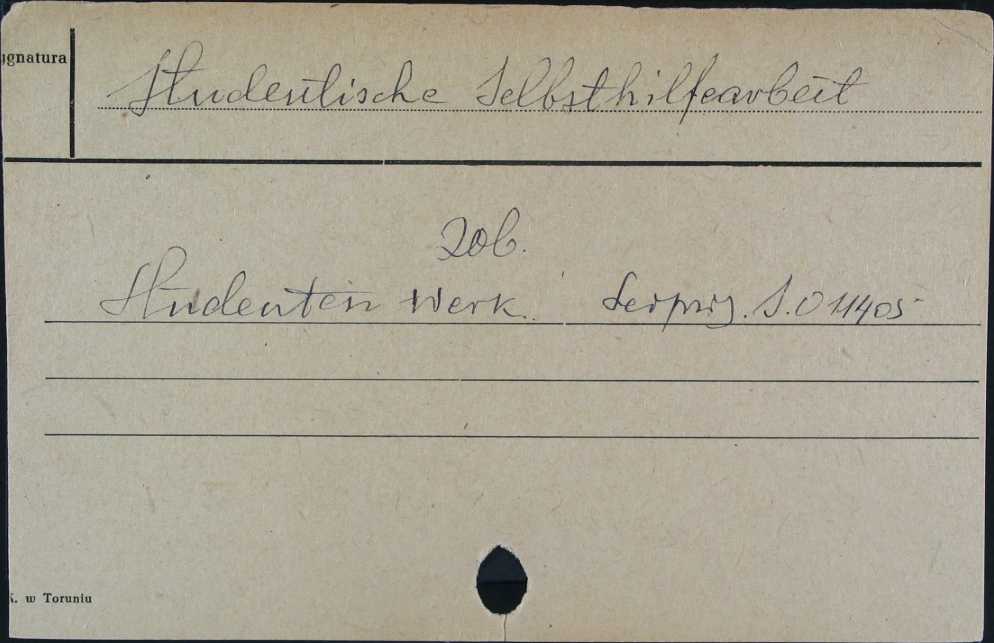 ygnatura
Studentische Selbsthilfearbeit
Zob.
Studenten Werk. Leipzig. S.O 11405
K. w Toruniu